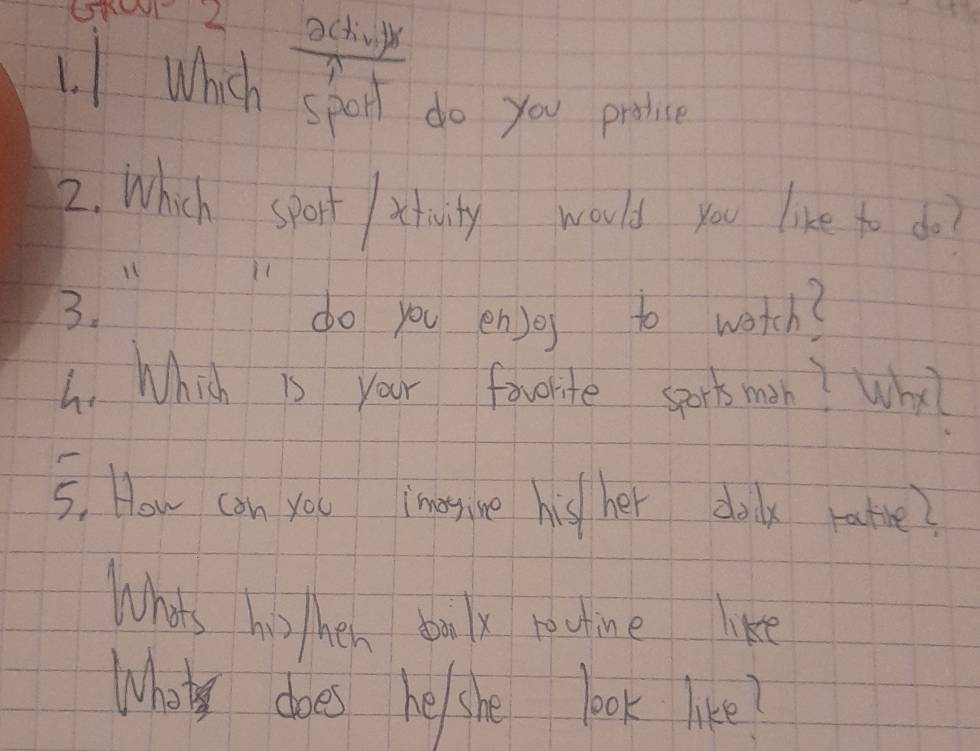 GROUP 2
activity
1. Which sport do you pratise
2. Which sport/activity would you like to do?
" "
3. do you enjoy to watch?
4. Which is your favorite sportsman? Why?
5. How can you imagine his/her daily routine?
Whats his/her daily routine like
What does he/she look like?